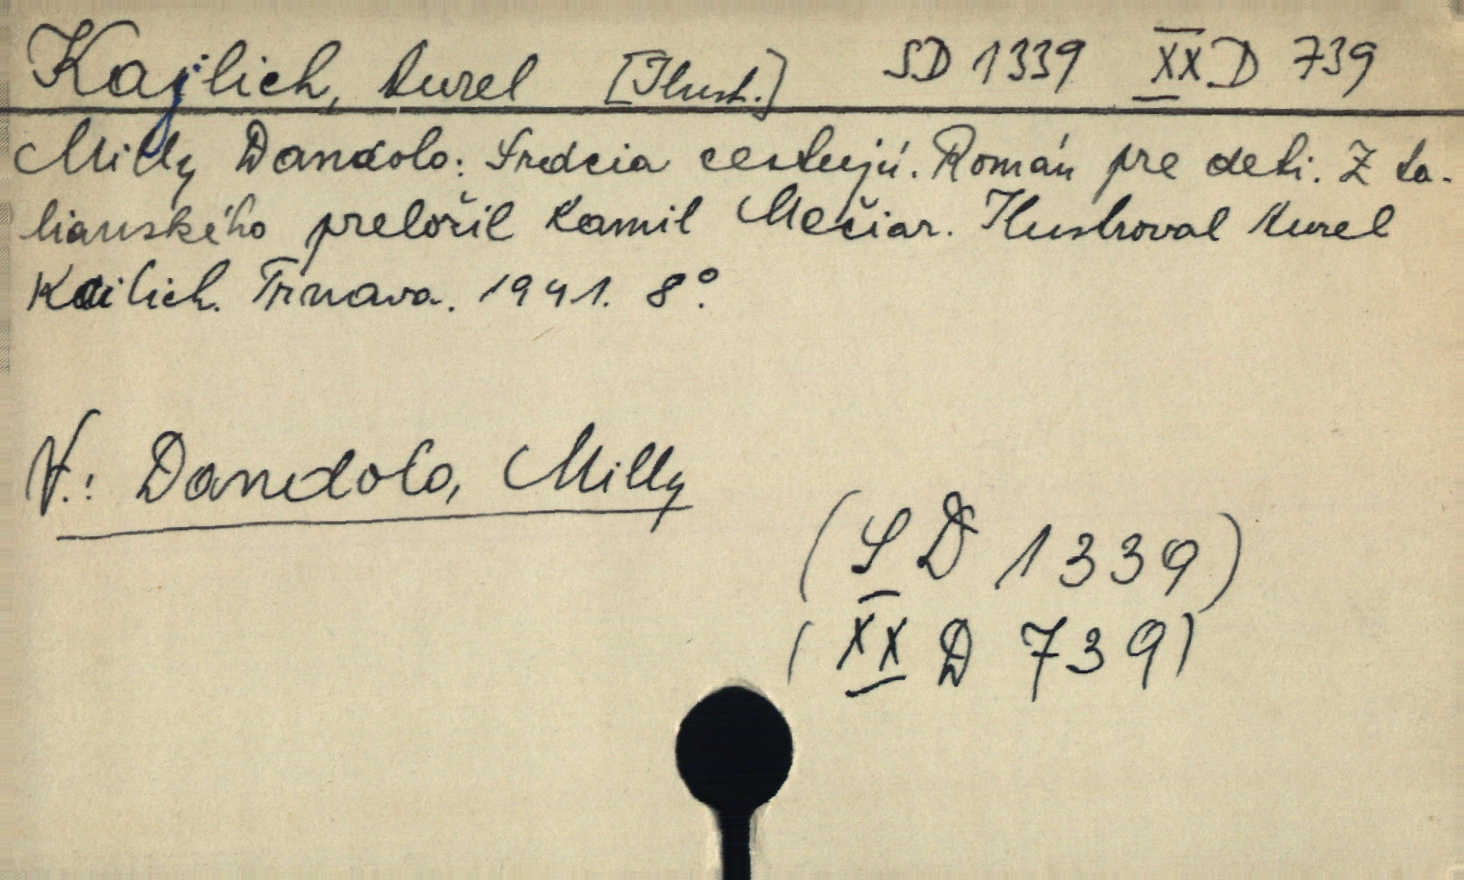 Kajlich, Aurel [Ilust.] SD 1339 XX D 739
Milly Dandolo: Srdcia cestujú. Román pre deti. Z ta-
lianského preložil Kamil Mečiar. Ilustroval Aurel
Kailich. Trnava. 1941. 8°.
V.: Dandolo, Milly
(SD 1339)
(XX D 739)